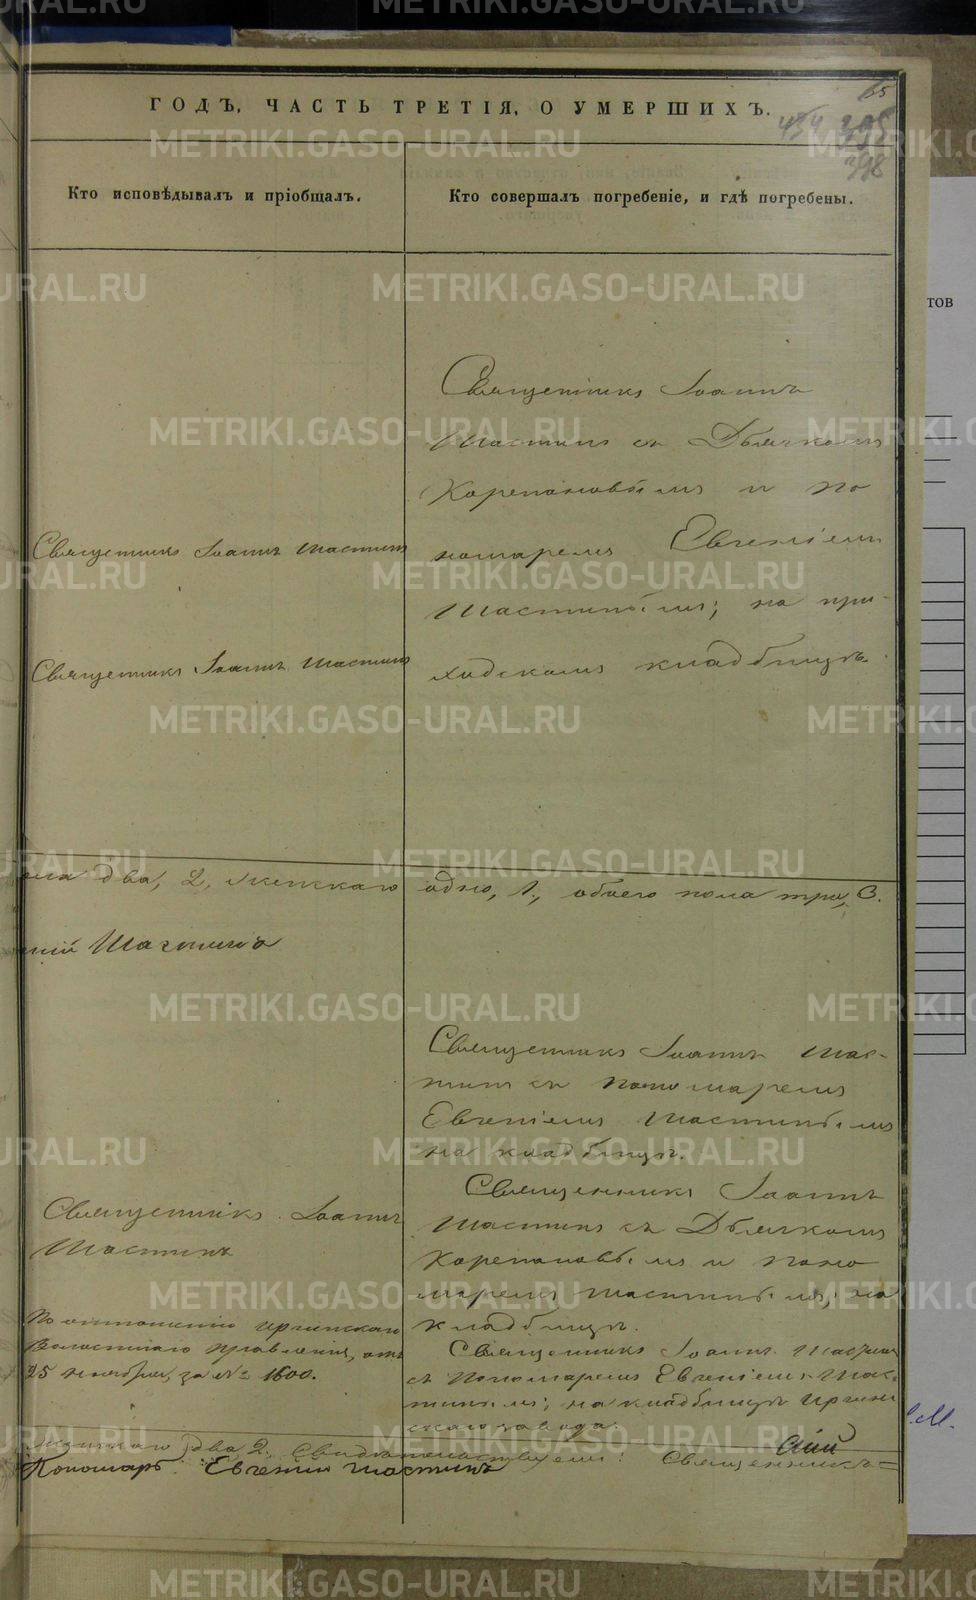 ГОДЪ, ЧАСТЬ ТРЕТІЯ, О УМЕРШИХЪ.
65
454 395
398
Кто исповѣдывалъ и пріобщалъ.
Кто совершалъ погребеніе, и гдѣ погребены.
тов
Священникъ Іоаннъ
Шастинъ съ Дьячкомъ
Корепановымъ и по
номаремъ Евгеніемъ
Шастинымъ; на при-
ходскомъ кладбищѣ.
Священникъ Іоаннъ Шастинъ
Священникъ Іоаннъ Шастинъ
два, 2, женскаго одно, 1, обоего пола три, 3.
Шастинъ
Священникъ Іоаннъ Шас-
тинъ съ пономаремъ
Евгеніемъ Шастинымъ
на кладбищѣ.
Священникъ Іоаннъ
Шастинъ
Священникъ Іоаннъ
Шастинъ съ Дьячкомъ
Корепановымъ и поно
маремъ Шастинымъ; на
кладбищѣ.
По отношенію Иргинскаго
Волостнаго Правленія, отъ
25 ноября, за № 1600.
Священникъ Іоаннъ Шастинъ
съ Пономаремъ Евгеніемъ Шас-
тинымъ; на кладбищѣ Иргин
скаго завода.
два 2. Свидѣтельствуемъ: Священникъ=
Пономарь Евгеній Шастинъ
METRIKI.GASO-URAL.RU